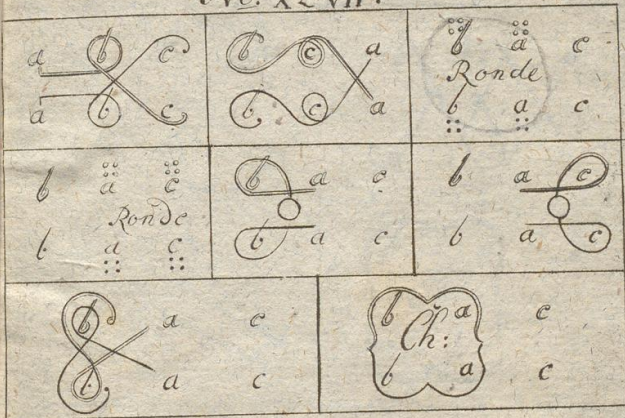 No. XLVII.
a b c
a b c
b c a
b c a
b a c
Ronde
b a c
b a c
Ronde
b a c
b a c
b a c
b a c
b a c
b a c
b a c
b a c
Ch:
b a c